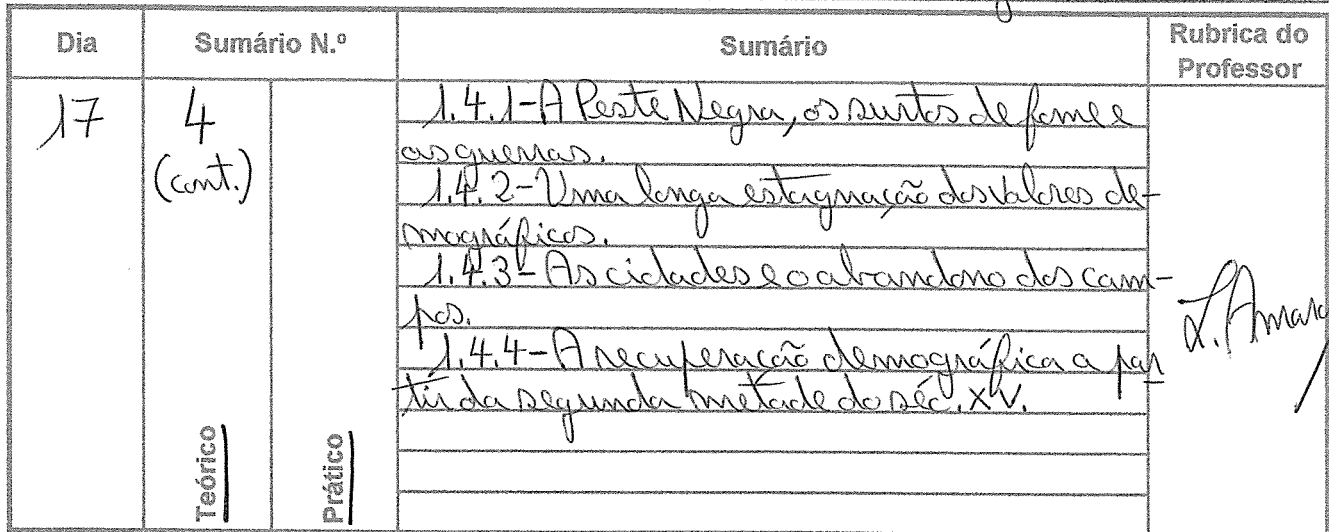 Dia
Sumário N.º
Sumário
Rubrica do
Professor
17
4
(cont.)
1.4.1-A Peste Negra, os surtos de fome e
as guerras.
1.4.2-Uma longa estagnação dos valores de-
mográficos.
1.4.3-As cidades e o abandono dos cam-
pos.
1.4.4-A recuperação demográfica a par
tir da segunda metade do séc. XV.
L. Amaral
Teórico
Prático